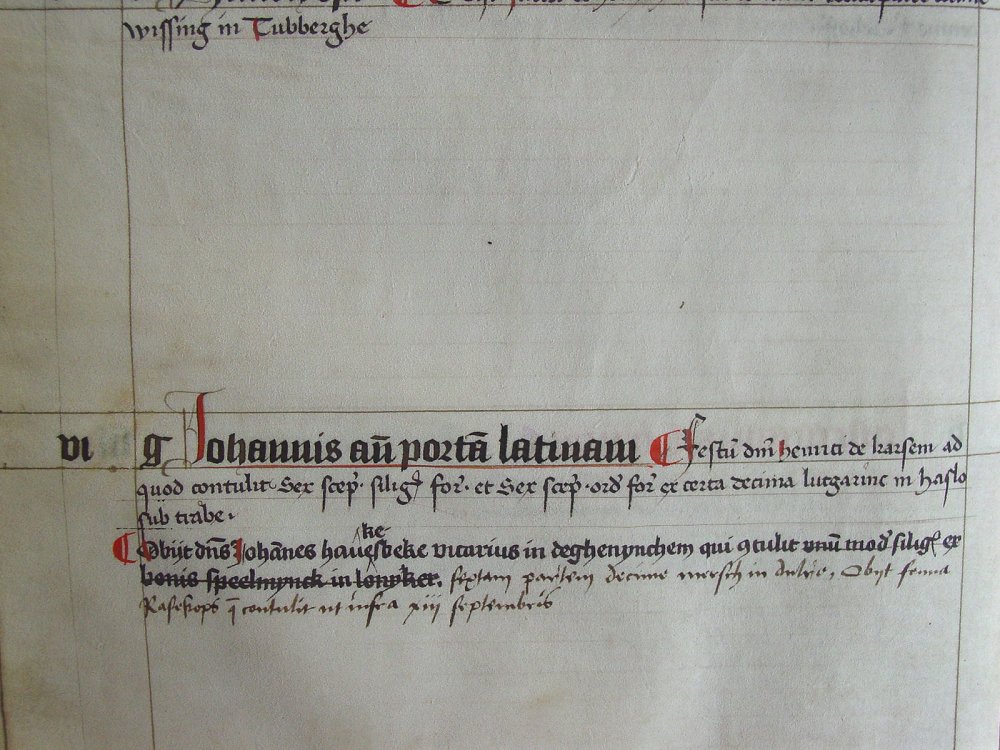 wissing in Tubberghe
vi g Johannis añ portā latinam festū dnī henrici de karsem ad
quod contulit Sex scep. silig. for. et Sex scep. ord. for. ex certa decima lutgarinc in haslo
sub trabe.
ke
Obijt dn̄s Johānes havesbeke vicarius in deghenynchem qui ꝯtulit unū mod. silig. ex
bonis speelmynck in lonyker. sextam partem decime mersch in Obijt femia
q̄ contulit ut infra xiij septembris